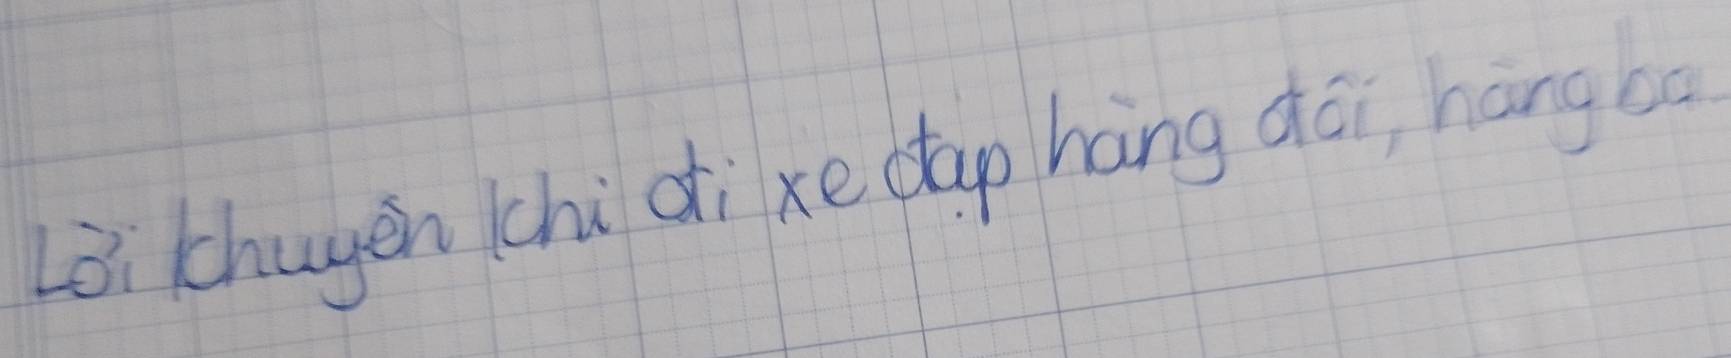 Lời khuyên khi đi xe đạp hàng đôi, hàng ba